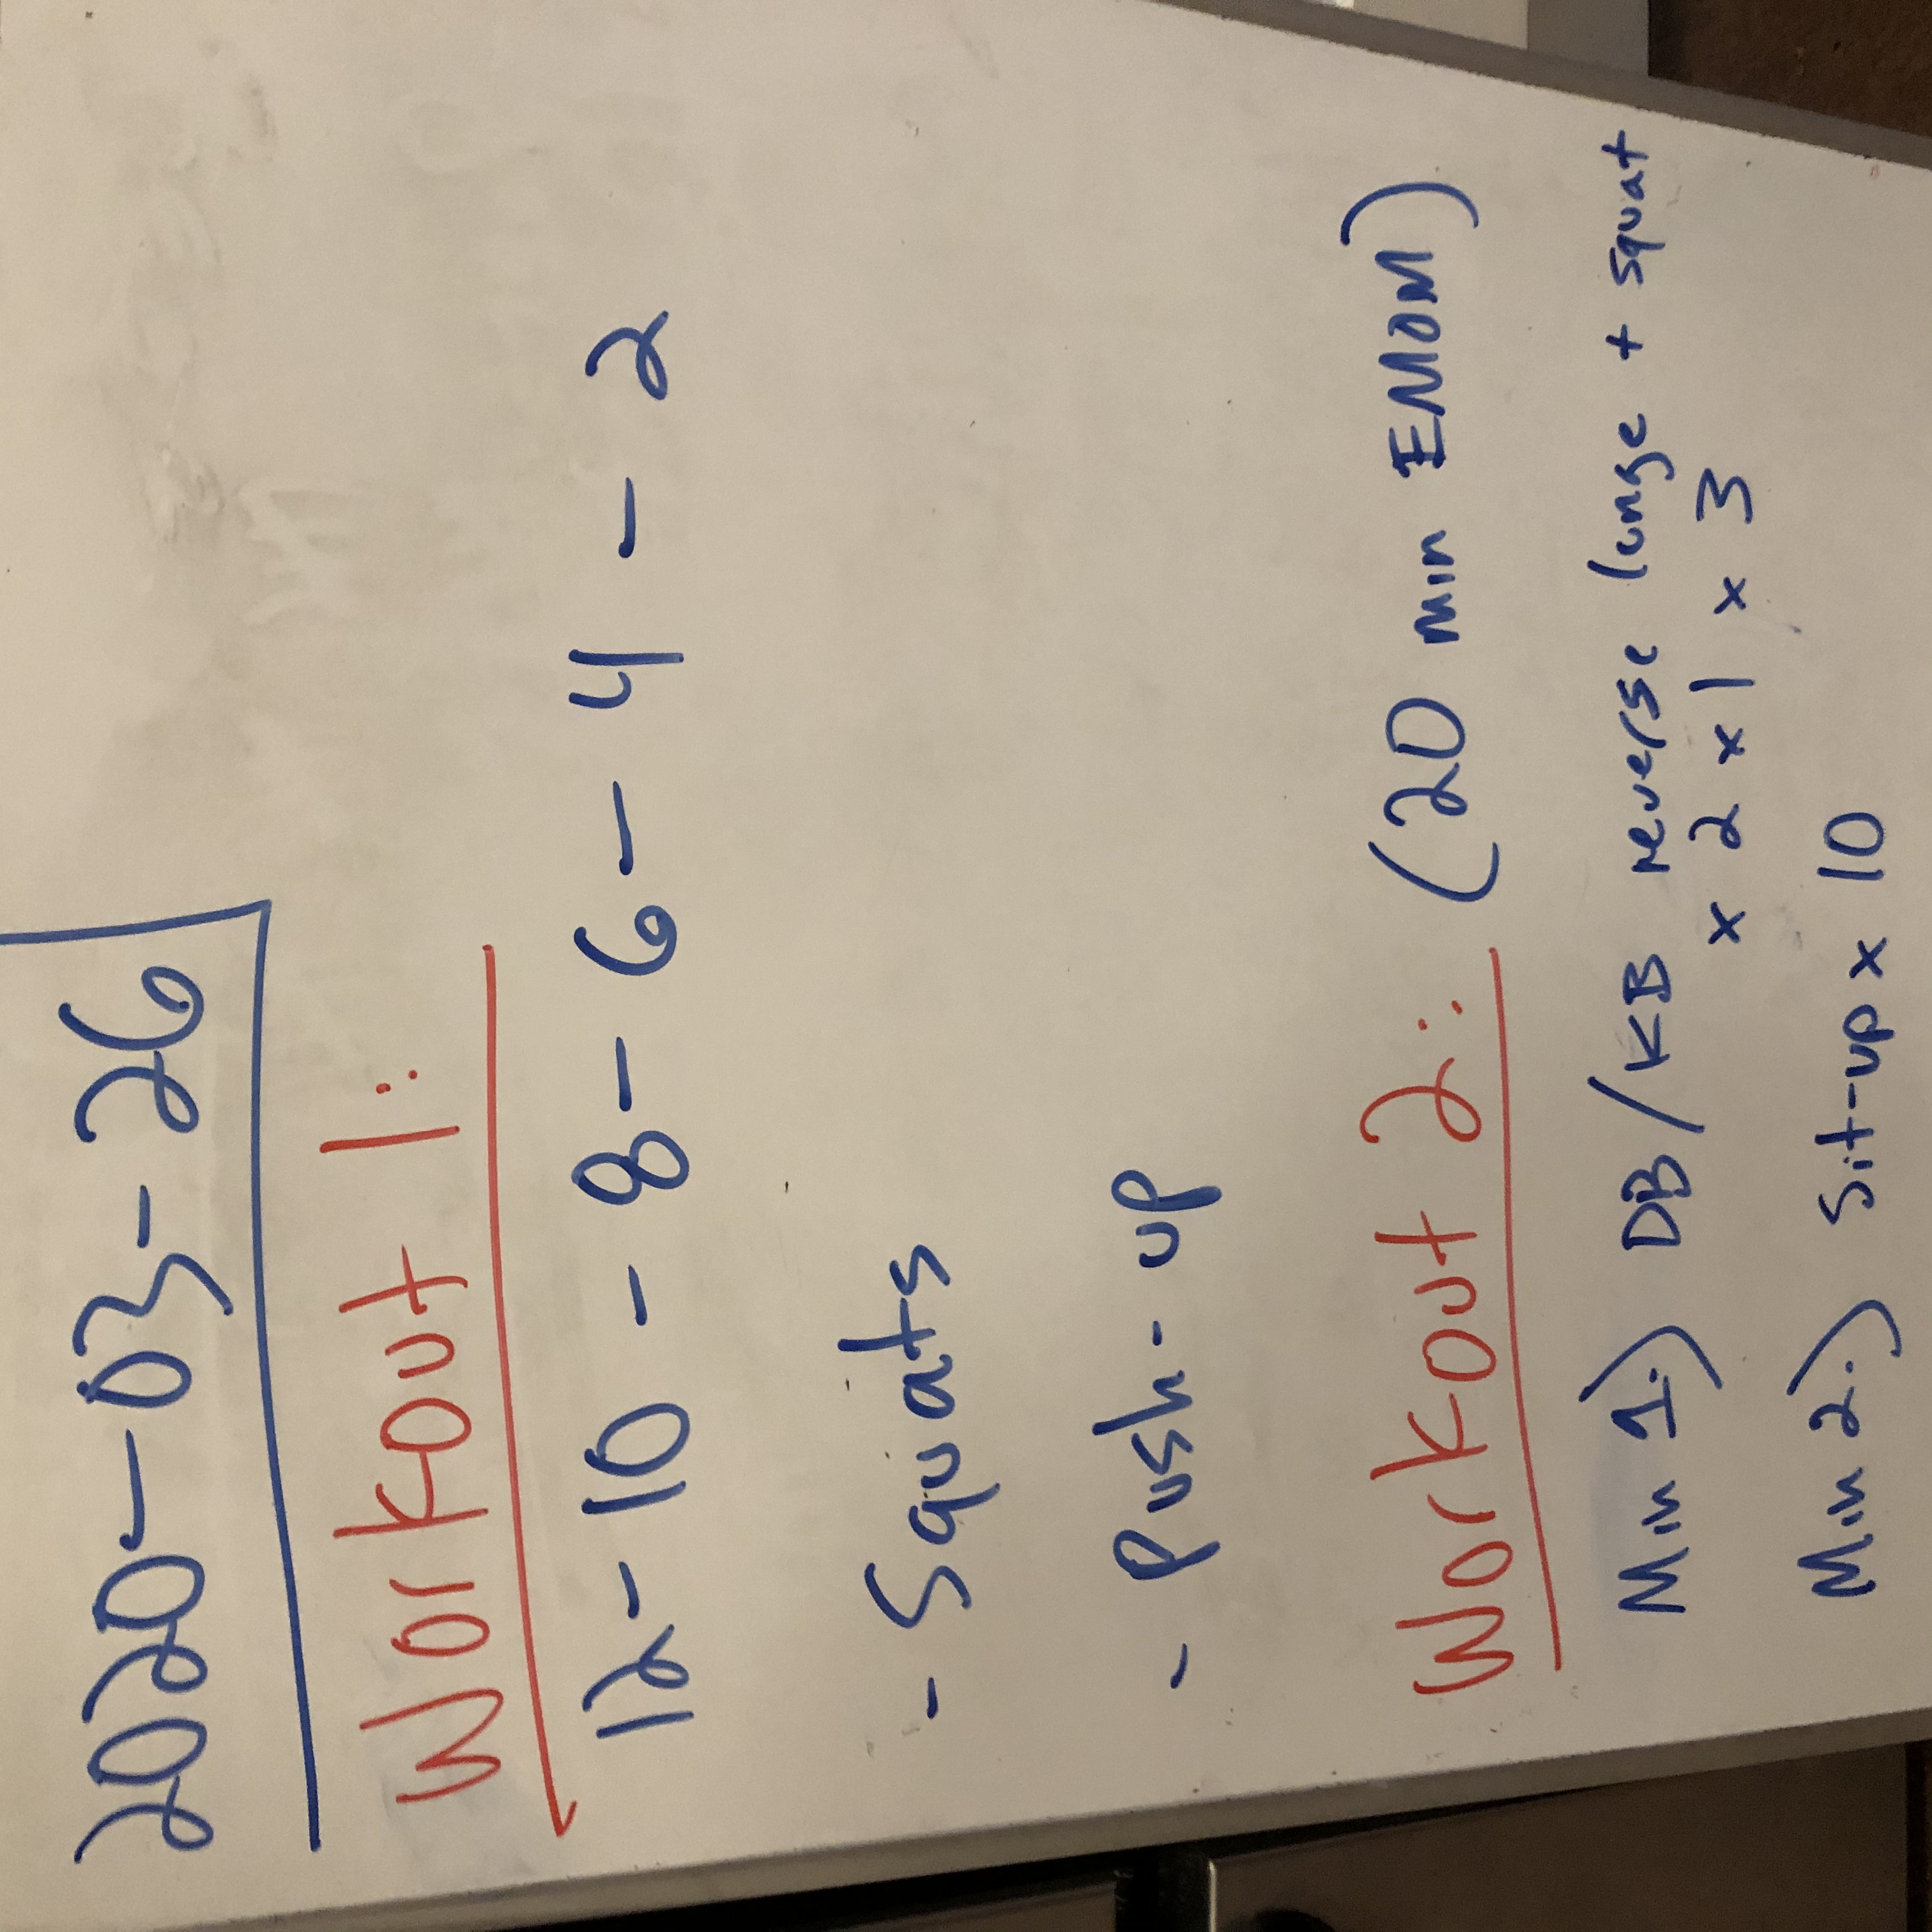 2020-03-26
Workout 1:
12-10-8-6-4-2
- Squats
- Push-up
Workout 2: (20 min EMOM)
Min 1.) DB/KB reverse lunge + squat
x 2 x 1 x 3
Min 2.) Sit-up x 10